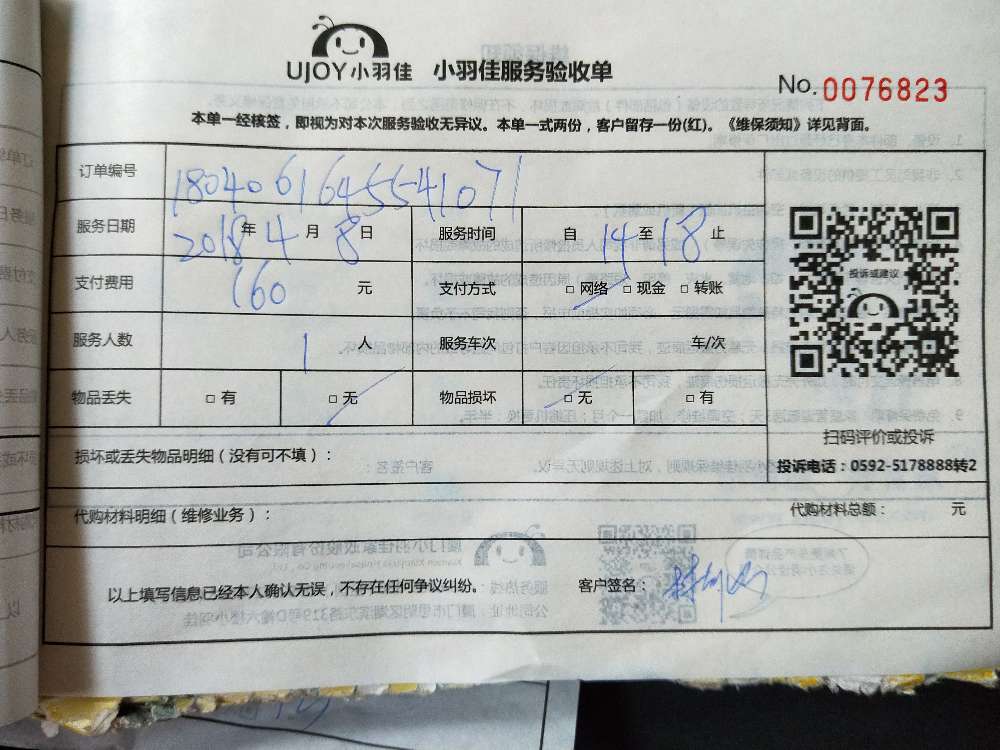 UJOY小羽佳 小羽佳服务验收单
No.0076823
本单一经核签，即视为对本次服务验收无异议。本单一式两份，客户留存一份(红)。《维保须知》详见背面。
订单编号 18040616455541071
服务日期 2018年4月8日 服务时间 自14至18止
支付费用 160元 支付方式 □网络 □现金 □转账
投诉或建议
服务人数 1人 服务车次 车/次
物品丢失 □有 □无 物品损坏 □无 □有
扫码评价或投诉
损坏或丢失物品明细（没有可不填）：
投诉电话：0592-5178888转2
代购材料明细（维修业务）： 代购材料总额： 元
以上填写信息已经本人确认无误，不存在任何争议纠纷。 客户签名：